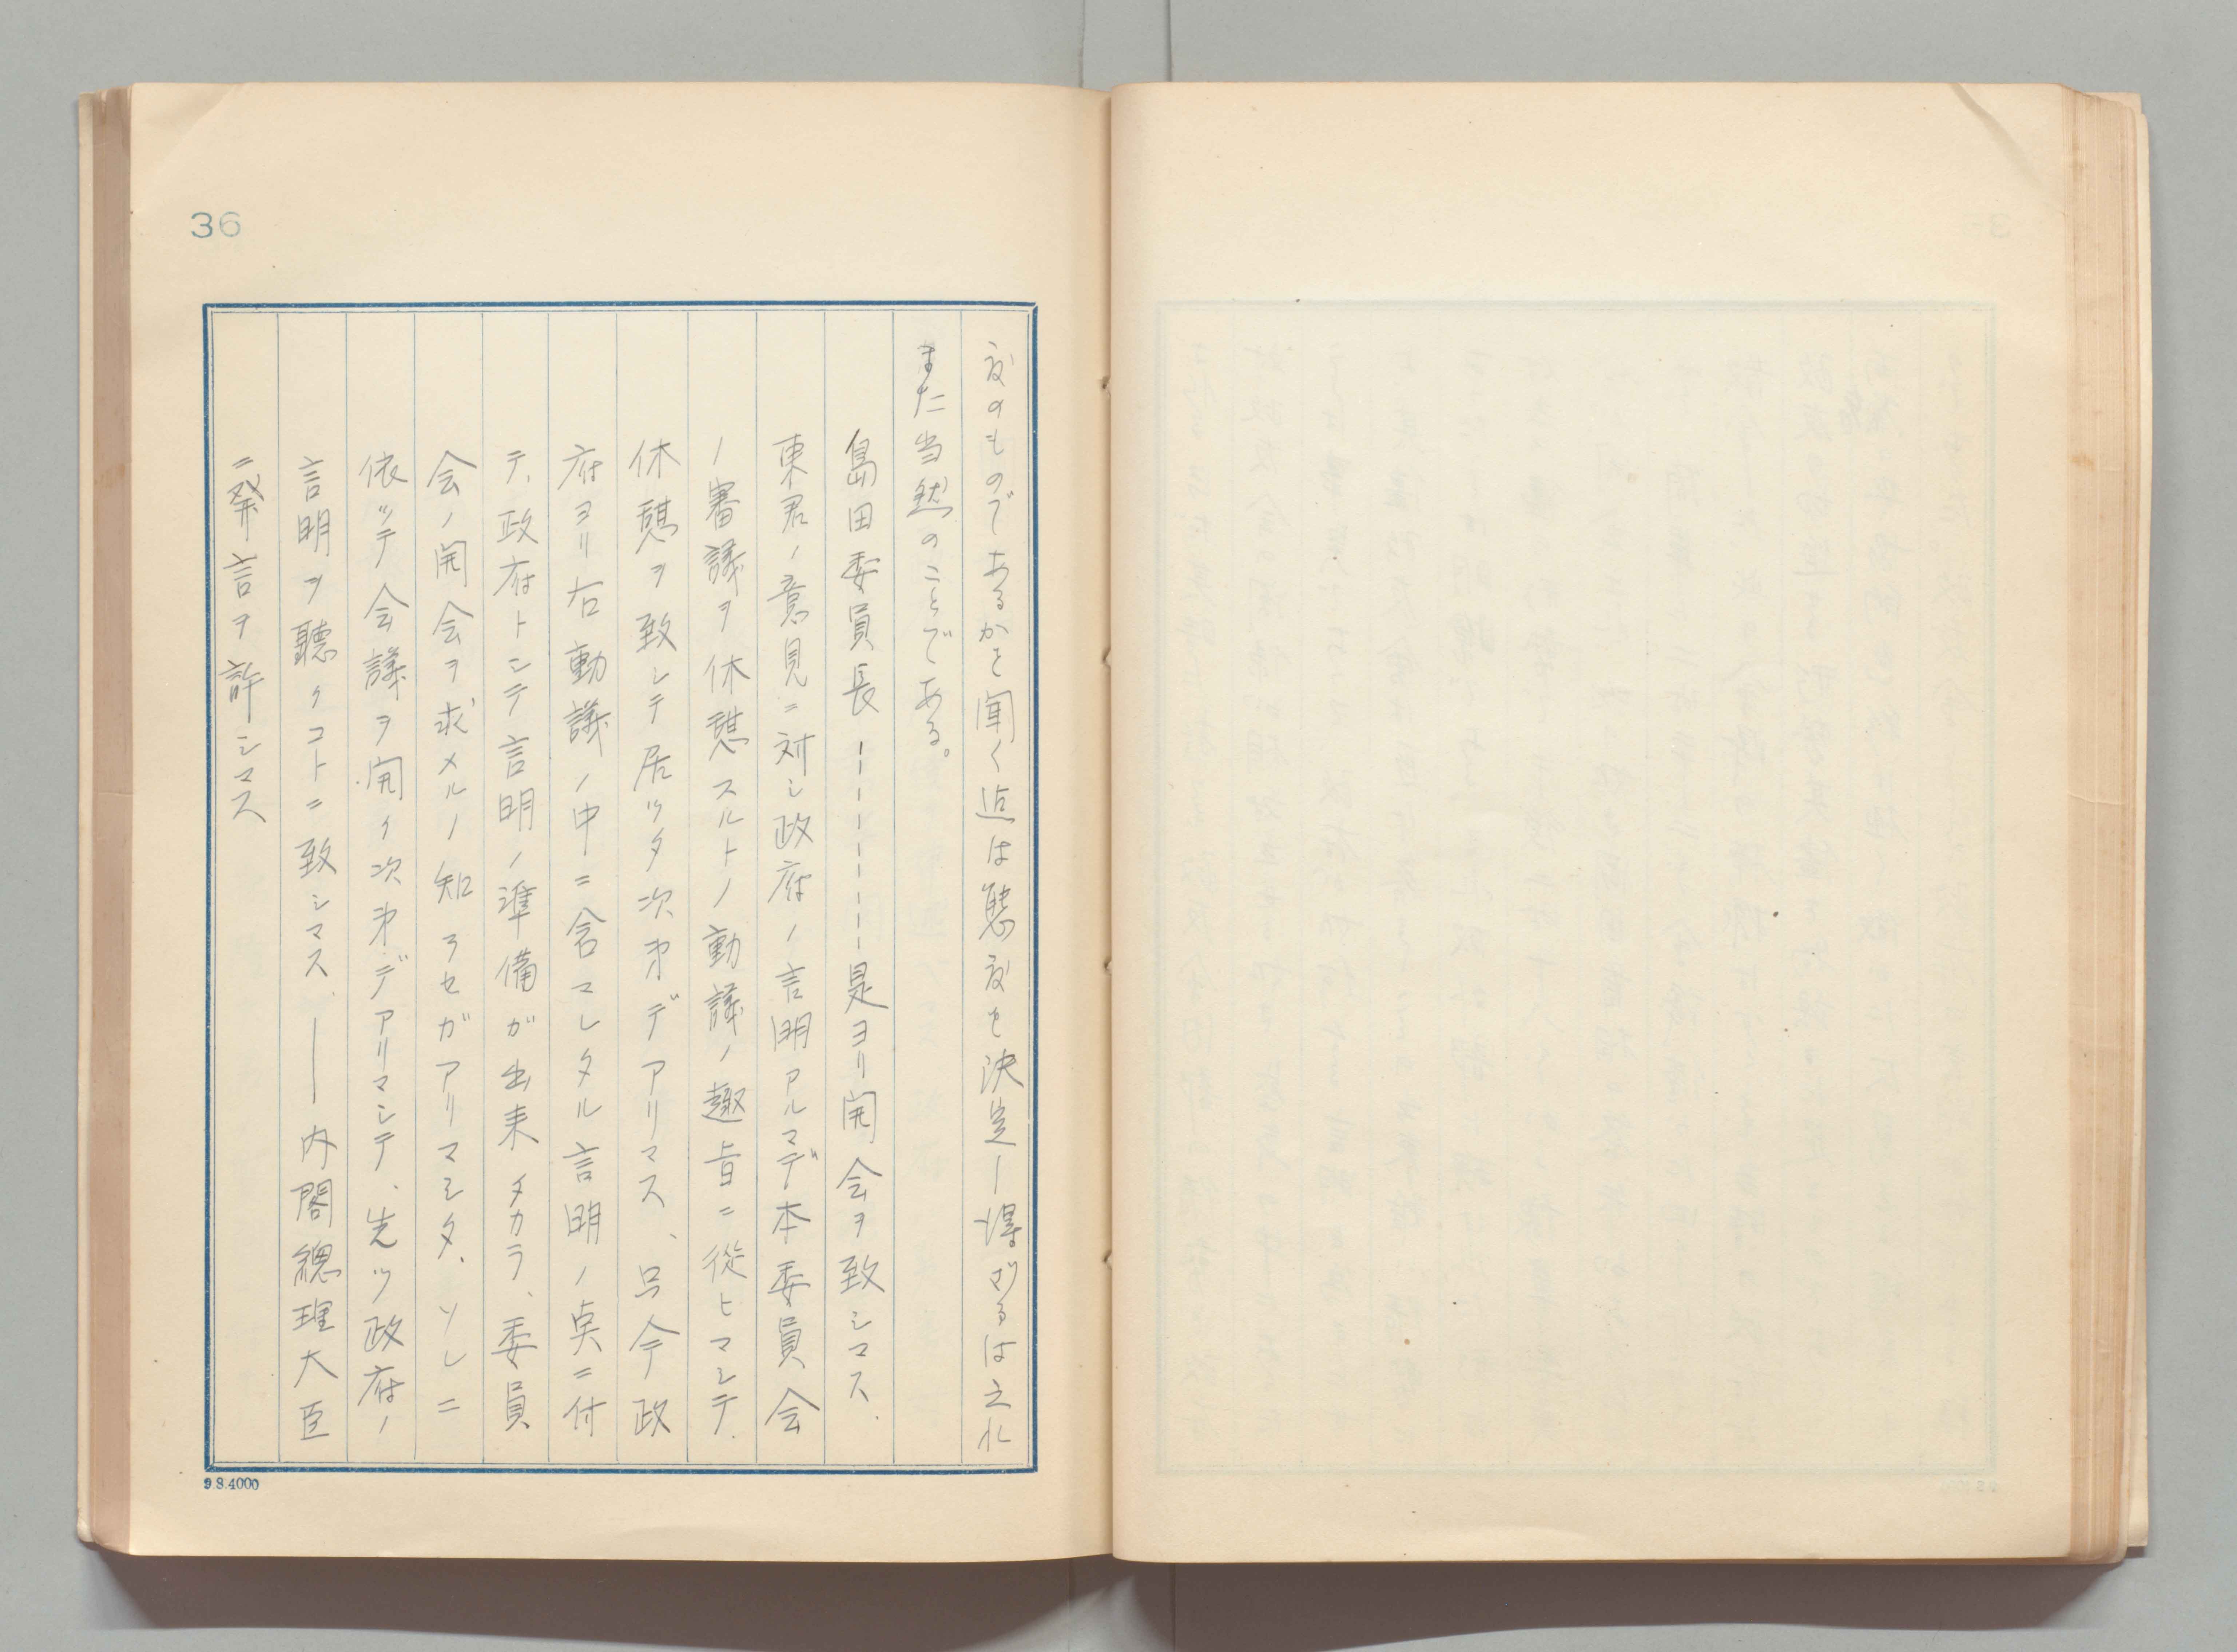 36
度のものであるかを聞く迄は態度を決定し得ざるは之れ
また当然のことである。
島田委員長 ――――――是ヨリ開会ヲ致シマス.
東君ノ意見ニ対シ政府ノ言明アルマデ本委員会
ノ審議ヲ休憩スルトノ動議ノ趣旨ニ從ヒマシテ.
休憩ヲ致シテ居ツタ次第デアリマス、只今政
府ヨリ右動議ノ中ニ含マレタル言明ノ点ニ付
テ、政府トシテ言明ノ準備が出来タカラ、委員
会ノ開会ヲ求メルノ知ラセガアリマシタ、ソレニ
依ッテ会議ヲ開ク次第デアリマシテ、先ツ政府ノ
言明ヲ聽クコトニ致シマス. ――内閣總理大臣
ニ発言ヲ許シマス
9.8.4000